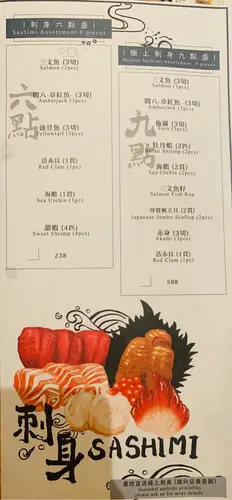 刺身六點盛
Sashimi Assortment-6 pieces
六點
三文魚 (3切)
Salmon (3pcs)
間八·章紅魚 (3切)
Amberjack (3pcs)
油甘魚 (3切)
Yellowtail (3pcs)
活赤貝 (1貫)
Red Clam (1pc)
海膽 (1貫)
Sea Urchin (1pc)
甜蝦 (4匹)
Sweet Shrimp (4pcs)
238
極上刺身九點盛
Deluxe Sashimi Assortment-9 pieces
九點
三文魚 (3切)
Salmon (3pcs)
間八·章紅魚 (3切)
Amberjack (3pcs)
拖羅 (3切)
Toro (3pcs)
牡丹蝦 (2匹)
Botan Shrimp (2pcs)
海膽 (2貫)
Sea Urchin (2pcs)
三文魚籽
Salmon Fish Roe
珍寶帆立貝 (2貫)
Japanese Jumbo Scallop (2pcs)
赤身 (3切)
Akami (3pcs)
活赤貝 (1貫)
Red Clam (1pc)
588
刺身 SASHIMI
產地直送極上刺身 (請向店員查詢)
Seasonal sashimi available,
please ask us for more details.